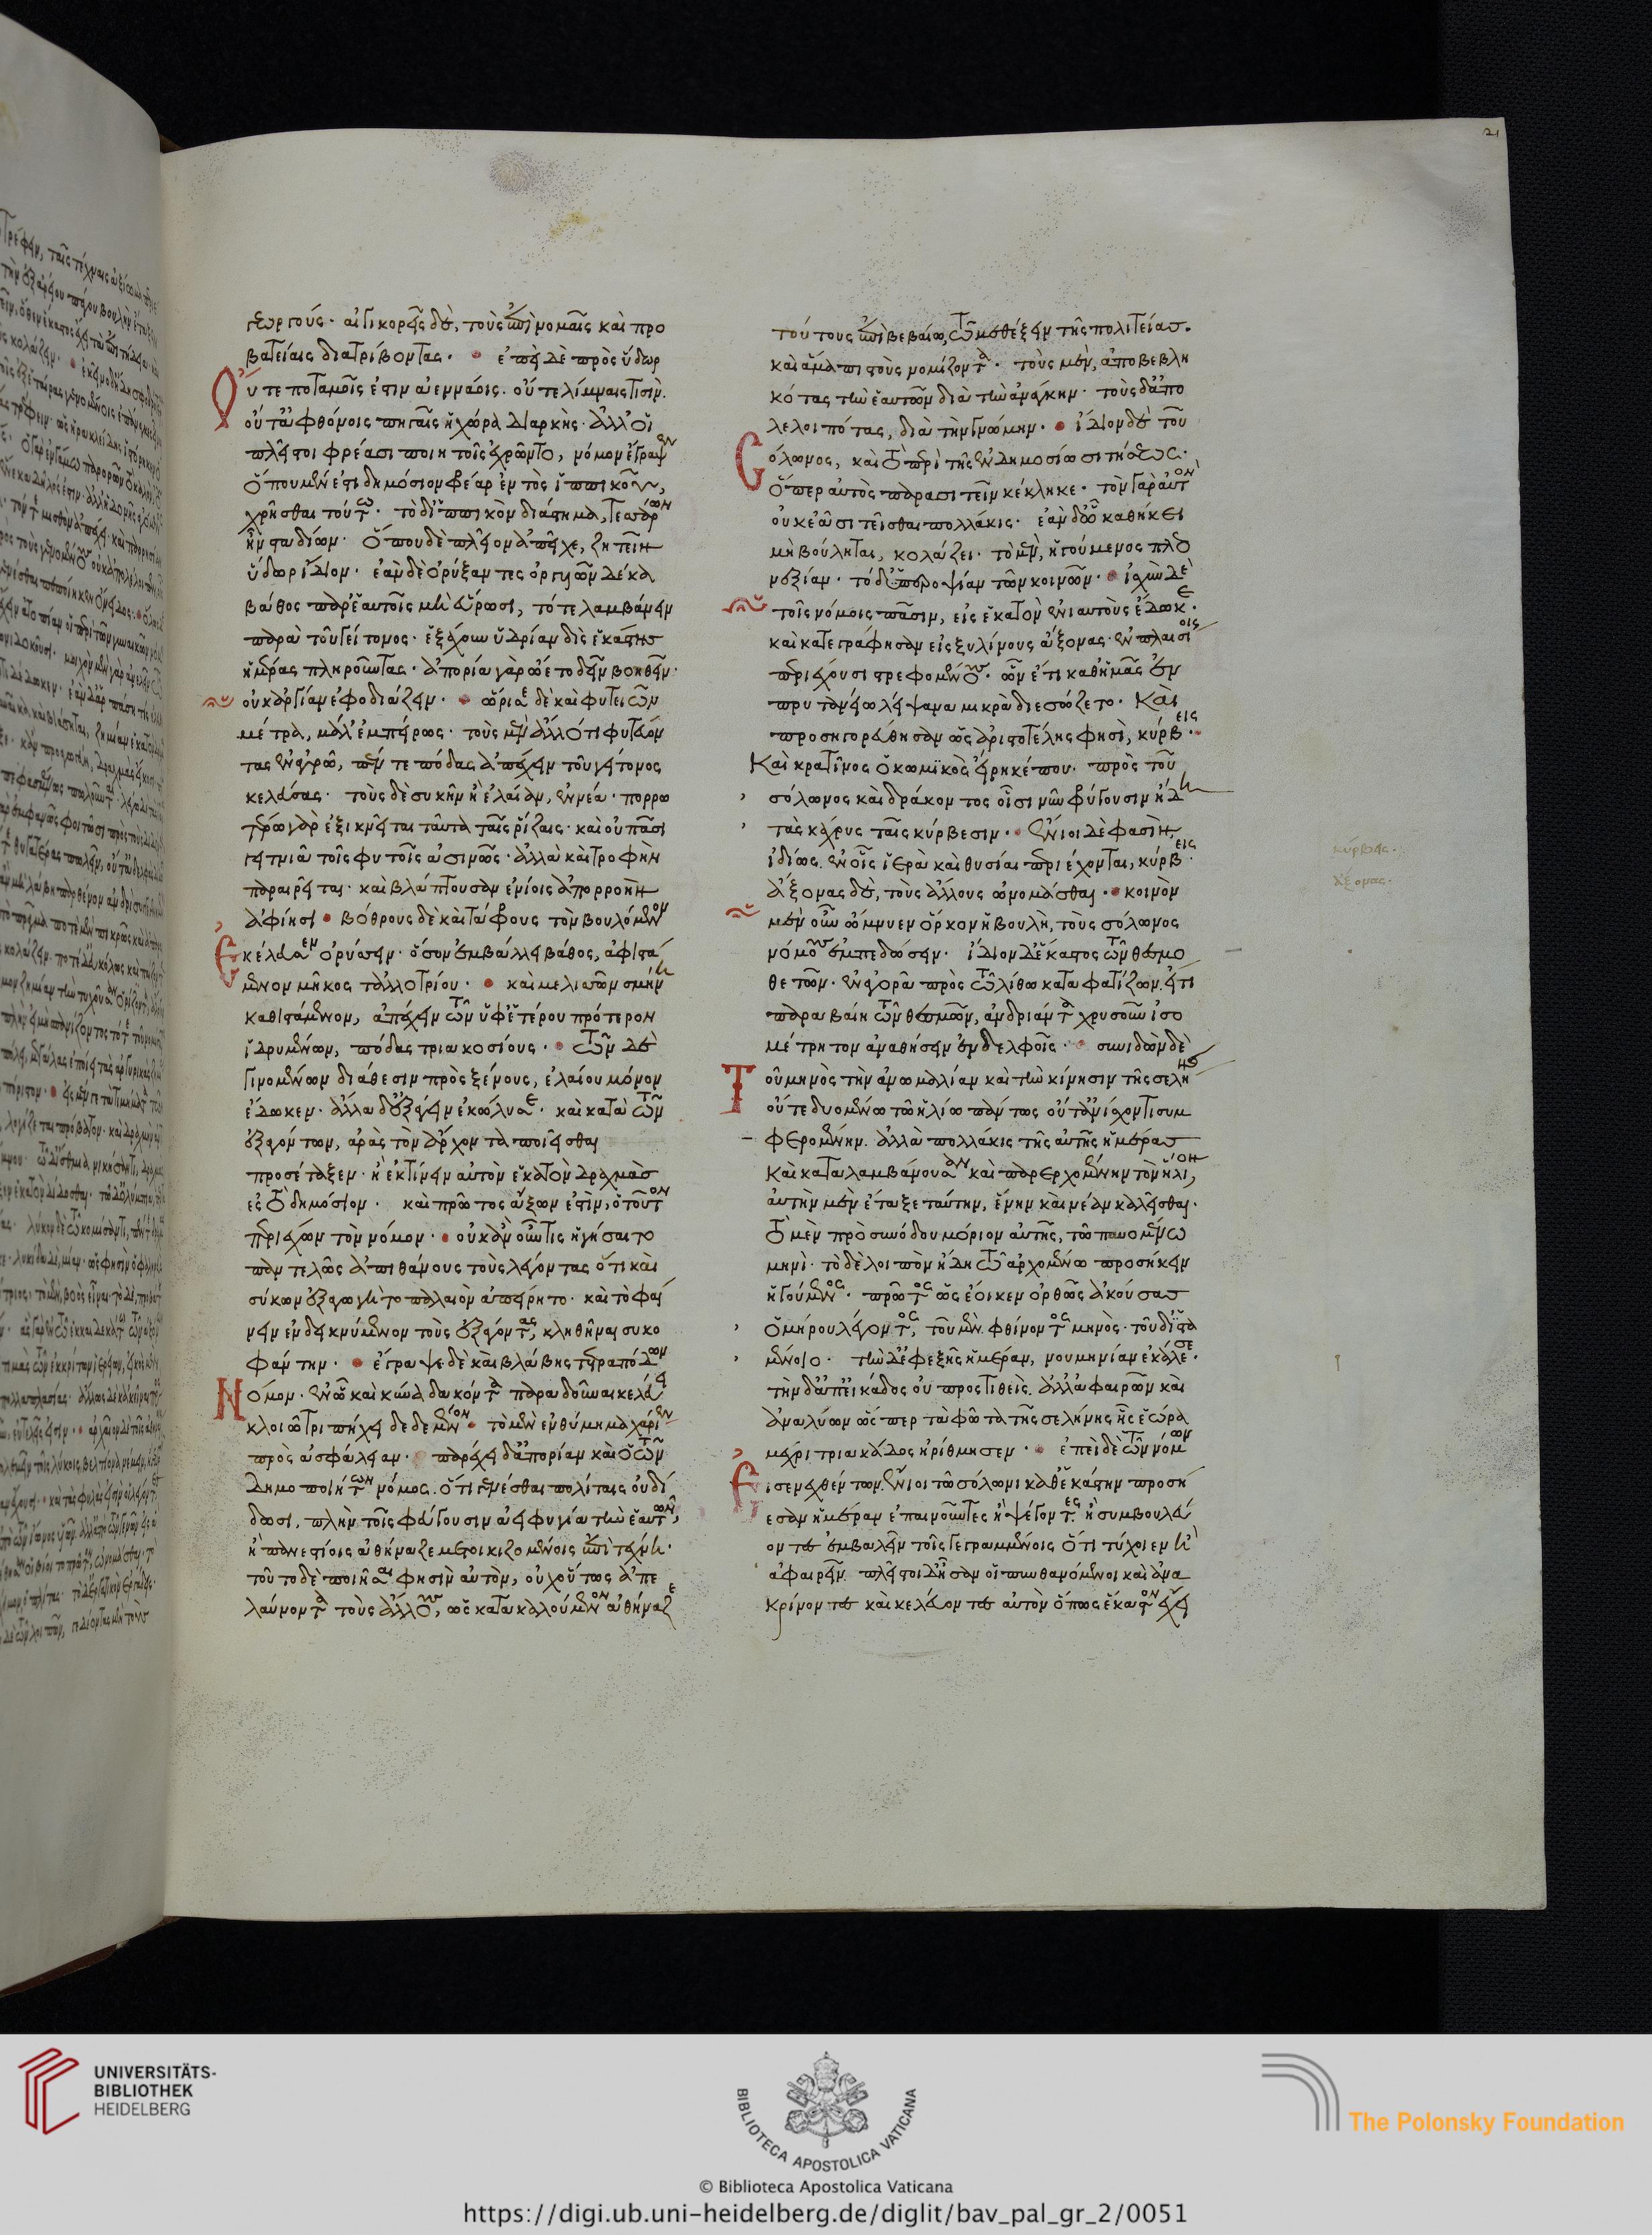 γεωργούς· αἰγικορεῖς δὲ, τοὺς ἐπὶ νομαῖς καὶ προ
βατείαις διατρίβοντας· ἐπεὶ δὲ πρὸς ὕδωρ
οὔτε ποταμοῖς ἐστιν ἀεννάοις. οὔτε λίμναις τισὶν.
οὔτ' ἀφθόνοις πηγαῖς ἡ χώρα διαρκὴς· ἀλλ' οἱ
πλεῖστοι φρέασι ποιητοῖς ἐχρῶντο, νόμον ἔγραψεν
ὅπου μέν ἐστι δημόσιον φρέαρ ἐντὸς ἱππικοῦ,
χρῆσθαι τούτω· τὸ δ' ἱππικὸν διάστημα, τεσσάρων
ἦν σταδίων· ὅπου δὲ πλεῖον ἀπεῖχε, ζητεῖν
ὕδωρ ἴδιον· ἐὰν δὲ ὀρύξαντες ὀργυιῶν δέκα
βάθος παρ' ἑαυτοῖς μὴ εὕρωσι, τότε λαμβάνειν
παρὰ τοῦ γείτονος· ἑξάχουν ὑδρίαν δὶς ἑκάστης
ἡμέρας πληροῦντας· ἀπορία γὰρ ὤετο δεῖν βοηθεῖν·
οὐκ ἀργίαν ἐφοδιάζειν· ὥρισε δὲ καὶ φυτειῶν
μέτρα, μάλ' ἐμπείρως· τοὺς μὲν ἄλλό τι φυτεύον
τας ἐν ἀγρῶ, πέντε πόδας ἀπέχειν τοῦ γείτονος
κελεύσας· τοὺς δὲ συκῆν ἢ ἐλαίαν, ἐννέα· πορρω
τέρω γὰρ ἐξικνεῖται ταῦτα ταῖς ῥίζαις· καὶ οὐ πᾶσι
γειτνιᾶ τοῖς φυτοῖς ἀσινῶς· ἀλλὰ καὶ τροφὴν
παραιρεῖται· καὶ βλάπτουσαν ἐνίοις ἀπορροὴν
ἀφίησι· βόθρους δὲ καὶ τάφρους τὸν βουλόμενον
ἐκέλευσεν ὀρύσσειν· ὅσον ἐμβάλλει βάθος, ἀφιστά
μενον μῆκος τἀλλοτρίου· καὶ μελισσῶν σμήνη
καθιστάμενον, ἀπέχειν τῶν ὑφ' ἑτέρου πρότερον
ἱδρυμένων, πόδας τριακοσίους· τῶν δὲ
γινομένων διάθεσιν πρὸς ξένους, ἐλαίου μόνον
ἔδωκεν· ἄλλα δ' ἐξάγειν ἐκώλυσε· καὶ κατὰ τῶν
ἐξαγόντων, ἀρὰς τὸν ἄρχοντα ποιεῖσθαι
προσέταξεν· ἢ ἐκτίνειν αὐτὸν ἑκατὸν δραχμὰς
εἰς τὸ δημόσιον· καὶ πρῶτος ἄξων ἐστὶν, ὁ τοῦτον
περιέχων τὸν νόμον· οὐκ ἂν οὖν τις ἡγήσαιτο
παντελῶς ἀπιθάνους τοὺς λέγοντας ὅτι καὶ
σύκων ἐξαγωγὴ τὸ παλαιὸν ἀπείρητο· καὶ τὸ φαί
νειν ἐνδεικνύμενον τοὺς ἐξάγοντας, κληθῆναι συκο
φάντην· ἔγραψε δὲ καὶ βλάβης τετραπόδων
Νόμον· ἐν ῶ καὶ κύνα δακόντα παραδοῦναι κελεύει
κλοιῶ τριπήχει δεδεμένον· τὸ μὲν ἐνθύμημα χάριεν
πρὸς ἀσφάλειαν· παρέχει δ' ἀπορίαν καὶ ὁ τῶν
δημοποιήτων νόμος. ὅτι γενέσθαι πολίταις οὐ δί
δωσι, πλὴν τοῖς φεύγουσιν ἀειφυγία τὴν ἑαυτῶν,
ἢ πανεστίοις ἀθήναζε μετοικιζομένοις ἐπὶ τέχνη·
τοῦτο δὲ ποιῆσαι φησὶν αὐτὸν, οὐχ οὕτως ἀπε
λαύνοντα τοὺς ἄλλους, ὡς κατακαλούμενον ἀθήναζε
21
τούτους ἐπὶ βεβαίω, τῶ μεθέξειν τῆς πολιτείας.
καὶ ἅμα πιστοὺς νομίζοντα· τοὺς μὲν, ἀποβεβλη
κότας τὴν ἑαυτῶν διὰ τὴν ἀνάγκην· τοὺς δ' ἀπο
λελοιπότας, διὰ τὴν γνώμην· ἴδιον δὲ τοῦ
Σόλωνος, καὶ τὸ περὶ τῆς ἐν δημοσίω σιτήσεως·
ὅπερ αὐτὸς παρασιτεῖν κέκληκε· τὸν γὰρ αὐτὸν
οὐκ ἐᾶ σιτεῖσθαι πολλάκις· ἐὰν δ' ᾧ καθήκει
μὴ βούληται, κολάζει· τὸ μὲν, ἡγούμενος πλεο
νεξίαν· τὸ δ' ὑπεροψίαν τῶν κοινῶν· ἰσχὺν δὲ
τοῖς νόμοις πᾶσιν, εἰς ἑκατὸν ἐνιαυτοὺς ἔδωκε·
καὶ κατεγράφησαν εἰς ξυλίνους ἄξονας· ἐν πλαισίοις
περιέχουσι στρεφομένους· ὧν ἔτι καθ' ἡμᾶς ἐν
πρυτανείω λείψανα μικρὰ διεσώζετο. Καὶ
προσηγορεύθησαν ὡς ἀριστοτέλης φησὶ, κύρβεις·
Καὶ κρατῖνος ὁ κωμϊκὸς εἴρηκέ που· πρὸς τοῦ
σόλωνος καὶ δράκοντος οἷσι νῦν φρύγουσιν ἤδη
τὰς κάχρυς ταῖς κύρβεσιν· ἔνιοι δὲ φασὶν
ἰδίως. ἐν οἷς ἱερὰ καὶ θυσίαι περιέχονται, κύρβεις·
ἄξονας δὲ, τοὺς ἄλλους ὠνομάσθαι· κοινὸν
μὲν οὖν ὤμνυεν ὅρκον ἡ βουλὴ, τοὺς σόλωνος
νόμους ἐμπεδώσειν· ἴδιον δ' ἕκαστος τῶν θεσμο
θετῶν· ἐν ἀγορᾶ πρὸς τῶ λίθω καταφατίζων. εἴ τι
παραβαίη τῶν θεσμῶν, ἀνδριάντα χρυσοῦν ἰσο
μέτρητον ἀναθήσειν ἐν δελφοῖς· συνιδὼν δὲ
Τοῦ μηνὸς τὴν ἀνωμαλίαν καὶ τὴν κίνησιν τῆς σελήνης
οὔτε δυομένω τῶ ἡλίω πάντως οὔτ' ἀνίσχοντι συμ
φερομένην. ἀλλὰ πολλάκις τῆς αὐτῆς ἡμέρας
Καὶ καταλαμβάνουσαν καὶ παρερχομένην τὸν ἥλιον,
αὐτὴν μὲν ἔταξε ταύτην, ἕνην καὶ νέαν καλεῖσθαι·
τὸ μὲν πρὸ συνόδου μόριον αὐτῆς, τῶ παυομένω
μηνὶ· τὸ δὲ λοιπὸν ἤδη τῶ ἀρχομένω προσήκειν
ἡγούμενος· πρῶτος ὡς ἔοικεν ὀρθῶς ἀκούσας
Ὁμήρου λέγοντος, τοῦ μὲν φθίνοντος μηνὸς· τοῦ δ' ἱστα
μένοιο· τὴν δ' ἐφεξῆς ἡμέραν, νουμηνίαν ἐκάλεσε·
τὴν δ' ἀπ' εἰκάδος οὐ προστιθεὶς. ἀλλ' ἀφαιρῶν καὶ
ἀναλύων ὥσπερ τὰ φῶτα τῆς σελήνης ἧς ἑώρα
μέχρι τριακάδος ἠρίθμησεν· ἐπεὶ δὲ τῶν νόμων
Εἰσενεχθέντων. ἔνιοι τῶ σόλωνι καθ' ἑκάστην προσή
εσαν ἡμέραν ἐπαινοῦντες ἢ ψέγοντες ἢ συμβουλεύ
οντες ἐμβαλεῖν τοῖς γεγραμμένοις ὅτι τύχοιεν ἢ
ἀφαιρεῖν. πλεῖστοι δ' ἦσαν οἱ πυνθανόμενοι καὶ ἀνα
κρίνοντες καὶ κελεύοντες αὐτὸν ὅπως ἕκαστον ἔχει
κύρβεις.
ἄξονας.
UNIVERSITÄTS-
BIBLIOTHEK
HEIDELBERG
BIBLIOTECA APOSTOLICA VATICANA
© Biblioteca Apostolica Vaticana
The Polonsky Foundation
https://digi.ub.uni-heidelberg.de/diglit/bav_pal_gr_2/0051